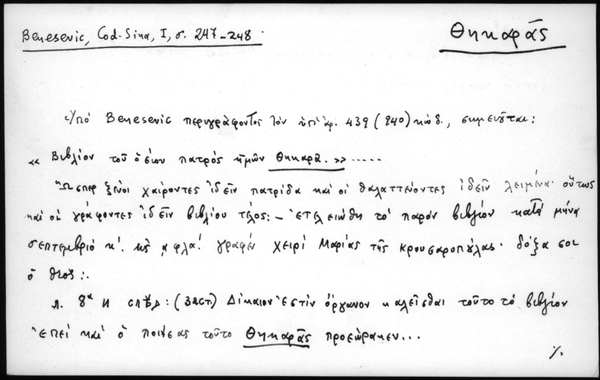 Benesevic, Cod-Sina, I, σ. 247-248.
Θηκαρᾶς
Ὑπό Benesevic περιγράφοντος τὸν ὑπ' ἀρ. 439 (840) κώδ., σημειοῦται:
« Βιβλίον τοῦ ὁσίου πατρός ἡμῶν Θηκαρᾶ. » .....
Ὥσπερ ξένοι χαίροντες ἰδεῖν πατρίδα καὶ οἱ θαλαττεύοντες ἰδεῖν λειμένα· οὕτως
καὶ οἱ γράφοντες ἰδεῖν βιβλίου τέλος:- ἐτελειώθη τὸ παρόν βιβλίον κατὰ μήνα
σεπτεμβριο κ'. ͵αφλα'. γραφέν χειρί Μαρίας τῆς κρουσαροπύλας. δόξα σοι
ὁ θεος:.
Λ. 8ᵃ И (заст.) Δίκαιον ἐστίν ὄργανον καλεῖσθαι τοῦτο τό βιβλίον
ἐπεὶ καὶ ὁ ποιήσας τοῦτο Θηκαρᾶς προεώρακεν...